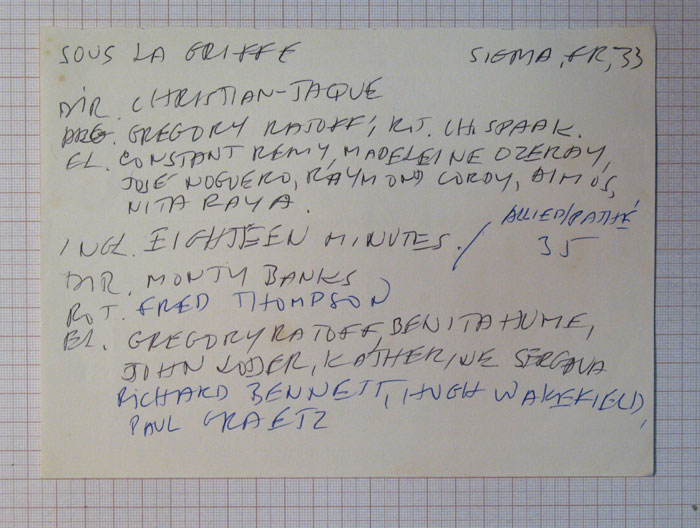 SOUS LA GRIFFE SIGMA, FR, 33
DIR. CHRISTIAN-JAQUE
ARG. GREGORY RATOFF, RÒT. CH. SPAAK.
EL. CONSTANT REMY, MADELEINE OZERAY,
JOSÉ NOGUERO, RAYMOND CORDY, AIMOS,
NITA RAYA.
INGL. EIGHTEEN MINUTES. / ALLIED/PATHÉ
35
DIR. MONTY BANKS
ROT. FRED THOMPSON
EL. GREGORY RATOFF, BENITA HUME,
JOHN LODER, KATHERINE SERGAVA
RICHARD BENNETT, HUGH WAKEFIELD,
PAUL GRAETZ